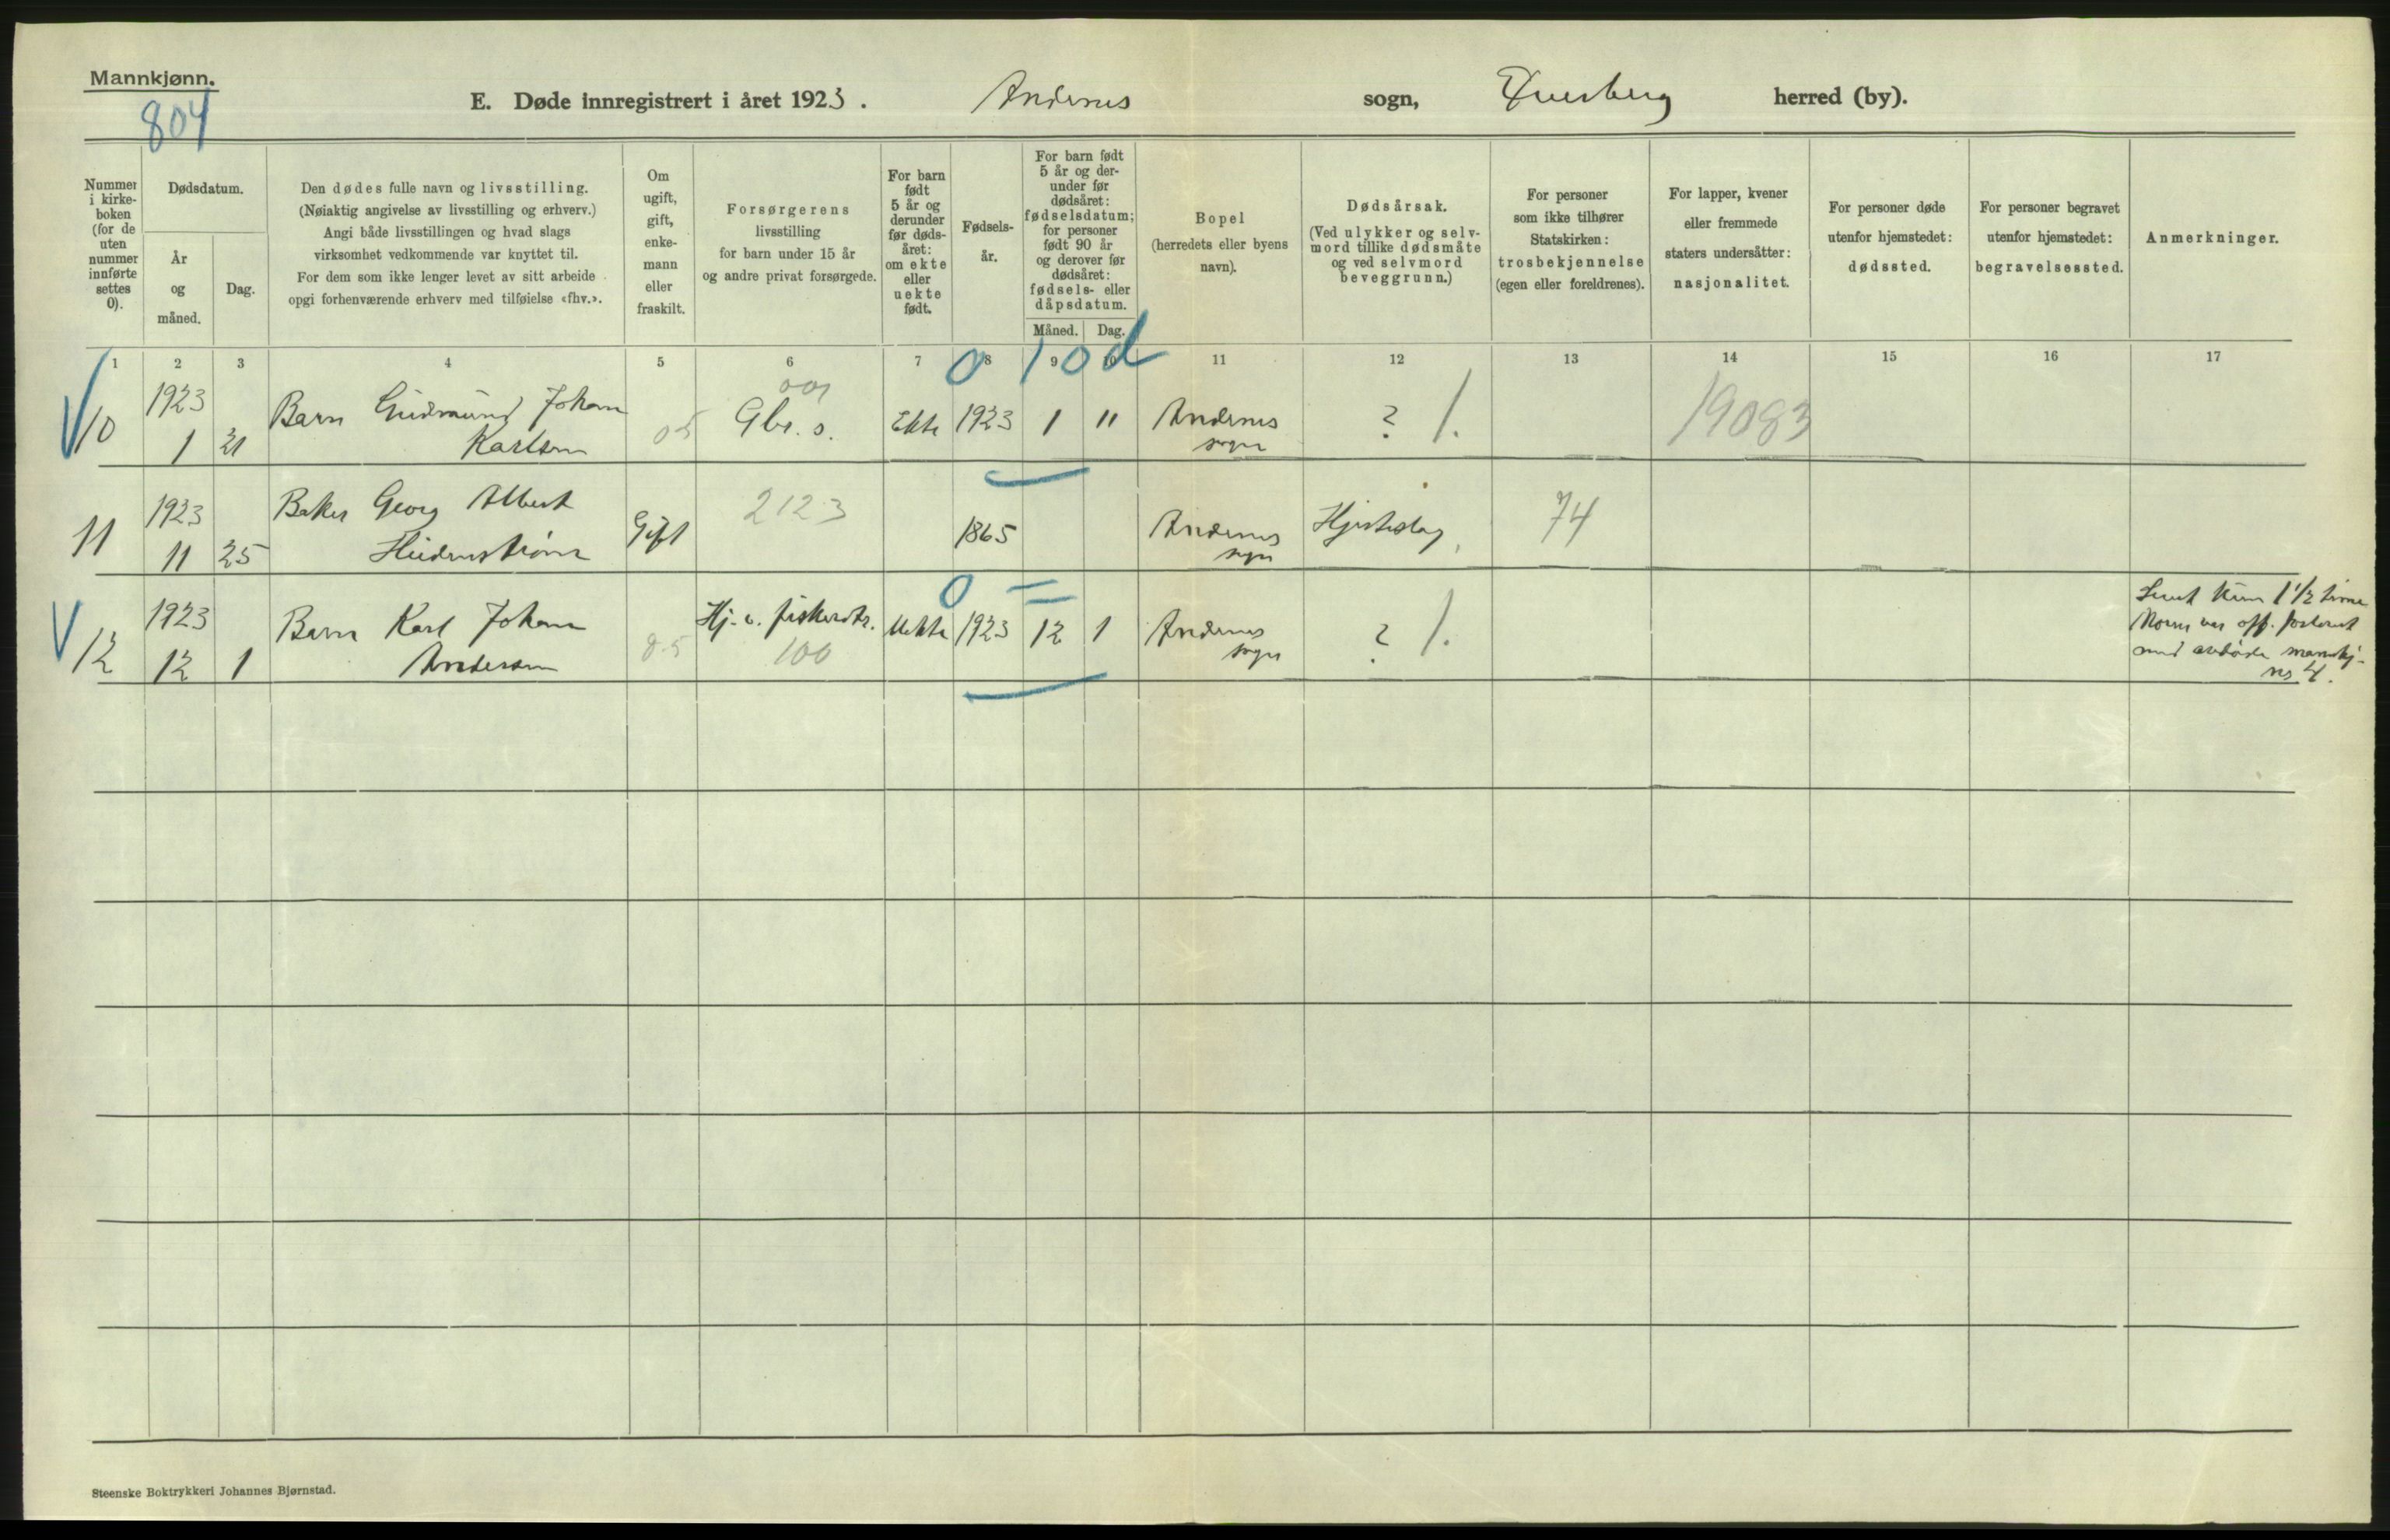 Mannkjønn.
804
E. Døde innregistrert i året 1923. Andenes sogn, Dverberg herred (by).
Nummer i kirke-boken (for de uten nummer innførte settes 0).
Dødsdatum.
År og måned.
Dag.
Den dødes fulle navn og livsstilling.
(Nøiaktig angivelse av livsstilling og erhverv.)
Angi både livsstillingen og hvad slags
virksomhet vedkommende var knyttet til.
For dem som ikke lenger levet av sitt arbeide
opgi forhenværende erhverv med tilføielse «fhv.».
Om ugift, gift, enke-mann eller fraskilt.
Forsørgerens
livsstilling
for barn under 15 år
og andre privat forsørgede.
For barn født 5 år og derunder før døds-året: om ekte eller uekte født.
Fødsels-år.
For barn født 5 år og der-under før dødsåret: fødselsdatum; for personer født 90 år og derover før dødsåret: fødsels- eller dåpsdatum.
Måned. Dag.
Bopel
(herredets eller byens
navn).
Dødsårsak.
(Ved ulykker og selv-
mord tillike dødsmåte
og ved selvmord
beveggrunn.)
For personer
som ikke tilhører
Statskirken:
trosbekjennelse
(egen eller foreldrenes).
For lapper, kvener
eller fremmede
staters undersåtter:
nasjonalitet.
For personer døde
utenfor hjemstedet:
dødssted.
For personer begravet
utenfor hjemstedet:
begravelsessted.
Anmerkninger.
1 2 3 4 5 6 7 8 9 10 11 12 13 14 15 16 17
0 10 d
10 1923 1 21 Barn Gudmund Johan
Karlsen 05 Gbr. s. Ekte 1923 1 11 Andenes
sogn ? 1. 19083
11 1923 11 25 Baker Georg Albert
Heidenstrøm Gift 2123 1865 Andenes
sogn Hjerteslag 74
0 =
12 1923 12 1 Barn Karl Johan
Andersen 0.5 Hj. v. fiskeridr.
100 Uekte 1923 12 1 Andenes
sogn ? 1.
Levet kun 1 1/2 time
Moren var off. forsørget
med avdøde mannkj.
nr 4.
Steenske Boktrykkeri Johannes Bjørnstad.